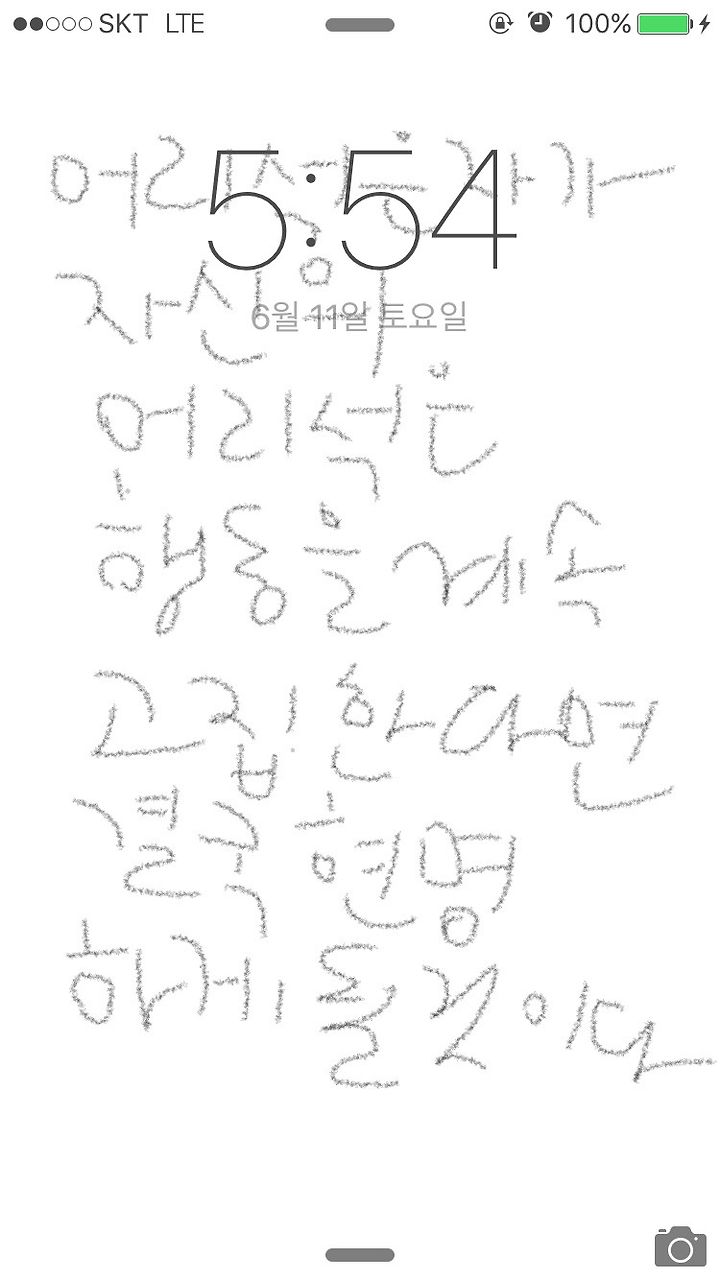 ●●○○○ SKT LTE 100%
5:54
6월 11일 토요일
어리석은 자가
자신의
어리석은
행동을 계속
고집한다면
결국 현명
하게 될 것이다